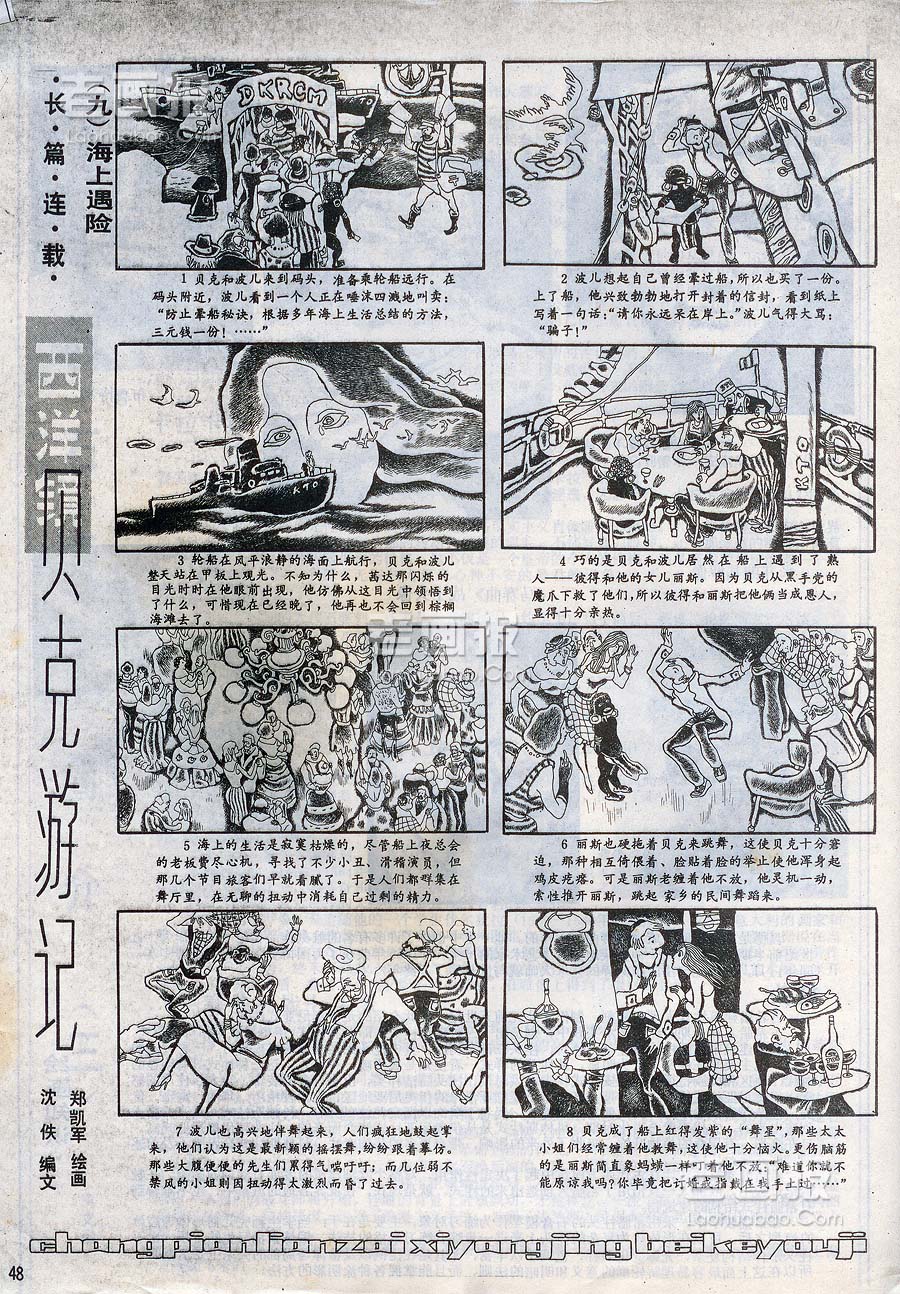 ·长·篇·连·载·
（九）海上遇险
西洋镜
贝克游记
郑凯军 绘画
沈 佚 编文
DKRCM
1 贝克和波儿来到码头，准备乘轮船远行。在
码头附近，波儿看到一个人正在唾沫四溅地叫卖：
“防止晕船秘诀，根据多年海上生活总结的方法，
三元钱一份！……”
2 波儿想起自己曾经晕过船，所以也买了一份。
上了船，他兴致勃勃地打开封着的信封，看到纸上
写着一句话：“请你永远呆在岸上。”波儿气得大骂：
“骗子！”
KTO
3 轮船在风平浪静的海面上航行，贝克和波儿
整天站在甲板上观光。不知为什么，茜达那闪烁的
目光时时在他眼前出现，他仿佛从这目光中领悟到
了什么，可惜现在已经晚了，他再也不会回到棕榈
海滩去了。
KTO
4 巧的是贝克和波儿居然在船上遇到了熟
人——彼得和他的女儿丽斯。因为贝克从黑手党的
魔爪下救了他们，所以彼得和丽斯把他俩当成恩人，
显得十分亲热。
5 海上的生活是寂寞枯燥的，尽管船上夜总会
的老板费尽心机，寻找了不少小丑、滑稽演员，但
那几个节目旅客们早就看腻了。于是人们都群集在
舞厅里，在无聊的扭动中消耗自己过剩的精力。
6 丽斯也硬拖着贝克来跳舞，这使贝克十分窘
迫，那种相互倚偎着、脸贴着脸的举止使他浑身起
鸡皮疙瘩。可是丽斯老缠着他不放，他灵机一动，
索性推开丽斯，跳起 家乡的民间舞蹈来。
7 波儿也高兴地伴舞起来，人们疯狂地鼓起掌
来，他们认为这是最新颖的摇摆舞，纷纷跟着摹仿。
那些大腹便便的先生们累得气喘吁吁；而几位弱不
禁风的小姐则因扭动得太激烈而昏了过去。
8 贝克成了船上红得发紫的“舞星”，那些太太
小姐们经常缠着他教舞，这使他十分恼火。更伤脑筋
的是丽斯简直象蚂蟥一样叮着他不放，“难道你就不
能原谅我吗？你毕竟把订婚戒指戴在我手上过……”
changpianlianzai xiyangjing beikeyouji
48
老画报
Laohuabao.Com
老画报
Laohuabao.Com
老画报
Laohuabao.Com